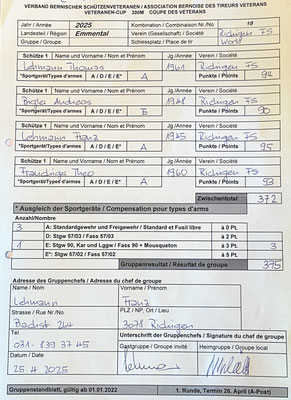 VERBAND BERNISCHER SCHÜTZENVETERANEN / ASSOCIATION BERNOISE DES TIREURS VETERANS
VETERANEN-CUP 300M COUPE DES VETERANS
Jahr / Année 2025 Kombination / Combinaison Nr./No 18
Landesteil / Région Emmental Verein (Gesellschaft) / Société
Gruppe / Groupe Schiessplatz / Place de tir
Schütze 1 Name und Vorname / Nom et Prénom Jg./Année Verein / Société
Lehmann Thomas 1961 FS
*Sportgerät/Types d'armes A / D / E / E* A Punkte / Points 94
Schütze 1 Name und Vorname / Nom et Prénom Jg./Année Verein / Société
Andreas 1948 FS
*Sportgerät/Types d'armes A / D / E / E* E Punkte / Points 90
Schütze 1 Name und Vorname / Nom et Prénom Jg./Année Verein / Société
Lehmann Franz 1945 FS
*Sportgerät/Types d'armes A / D / E / E* A Punkte / Points 95
Schütze 1 Name und Vorname / Nom et Prénom Jg./Année Verein / Société
Theo 1960 FS
*Sportgerät/Types d'armes A / D / E / E* A Punkte / Points 93
Zwischentotal 372
* Ausgleich der Sportgeräte / Compensation pour types d'arms
Anzahl/Nombre
3 A: Standardgewehr und Freigewehr / Standard et Fusil libre à 0 Pt.
D: Stgw 57/03 / Fass 57/03 à 2 Pt.
1 E: Stgw 90, Kar und Lggw / Fass 90 + Mousqueton à 3 Pt. 3
E*: Stgw 57/02 / Fass 57/02 à 5 Pt.
Gruppenresultat / Résultat de groupe 375
Adresse des Gruppenchefs / Adresse du chef de groupe
Name / Nom Vorname / Prénom
Lehmann Franz
Strasse / Rue Nr./No PLZ / NP, Ort / Lieu
Bachstr. 3078
Tel. Unterschrift der Gruppenchefs / Signature du chef de groupe
031 - 839 37 45 Gastgruppe / Groupe invité Heimgruppe / Groupe local
Datum / Date
25.4.2025
Gruppenstandblatt, gültig ab 01.01.2022 1. Runde, Termin 26. April (A-Post)